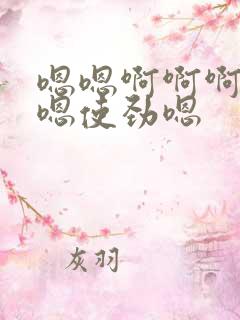 嗯嗯啊啊啊
嗯使劲嗯
灰羽